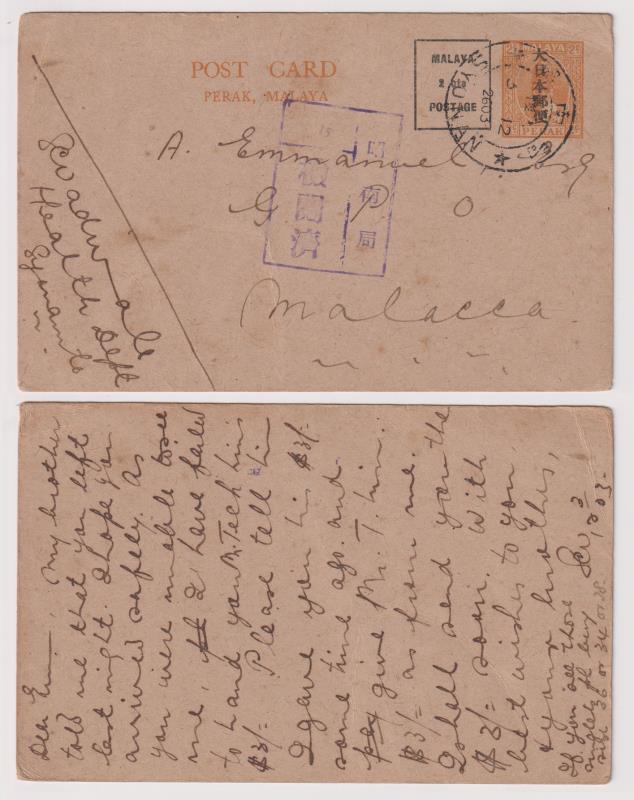 POST CARD
PERAK, MALAYA
MALAYA
2 cts
POSTAGE
MALAYA
大日本郵便
PERAK
2603
12
A. Emmanuel, Esq
G P O
Malacca
昭南局
検閲済
15
Health Dept
Dear Em—, My brother
told me that you left
last night. I hope you
arrived safely. as
you were unable to see
me, I have failed
to hand you Mr. Tech his
$3/- Please tell him
I gave you his $3/-
some time ago. and
give Mr. T. him
$3/- as from me.
I shall send you the
$3/- soon. With
best wishes to you,
your brother,
If you see those
singlets pl. buy
size 36 or 34 or 38.